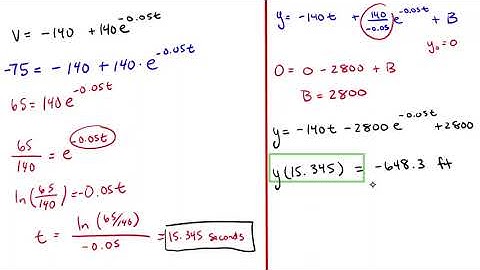 V = -140 + 140e^-0.05t
-75 = -140 + 140·e^-0.05t
65 = 140e^-0.05t
65/140 = e^-0.05t
ln(65/140) = -0.05t
t = ln(65/140)/-0.05 = 15.345 seconds
y = -140t + 140/-0.05 e^-0.05t + B
y₀=0
0 = 0 - 2800 + B
B = 2800
y = -140t - 2800e^-0.05t + 2800
y(15.345) = -648.3 ft